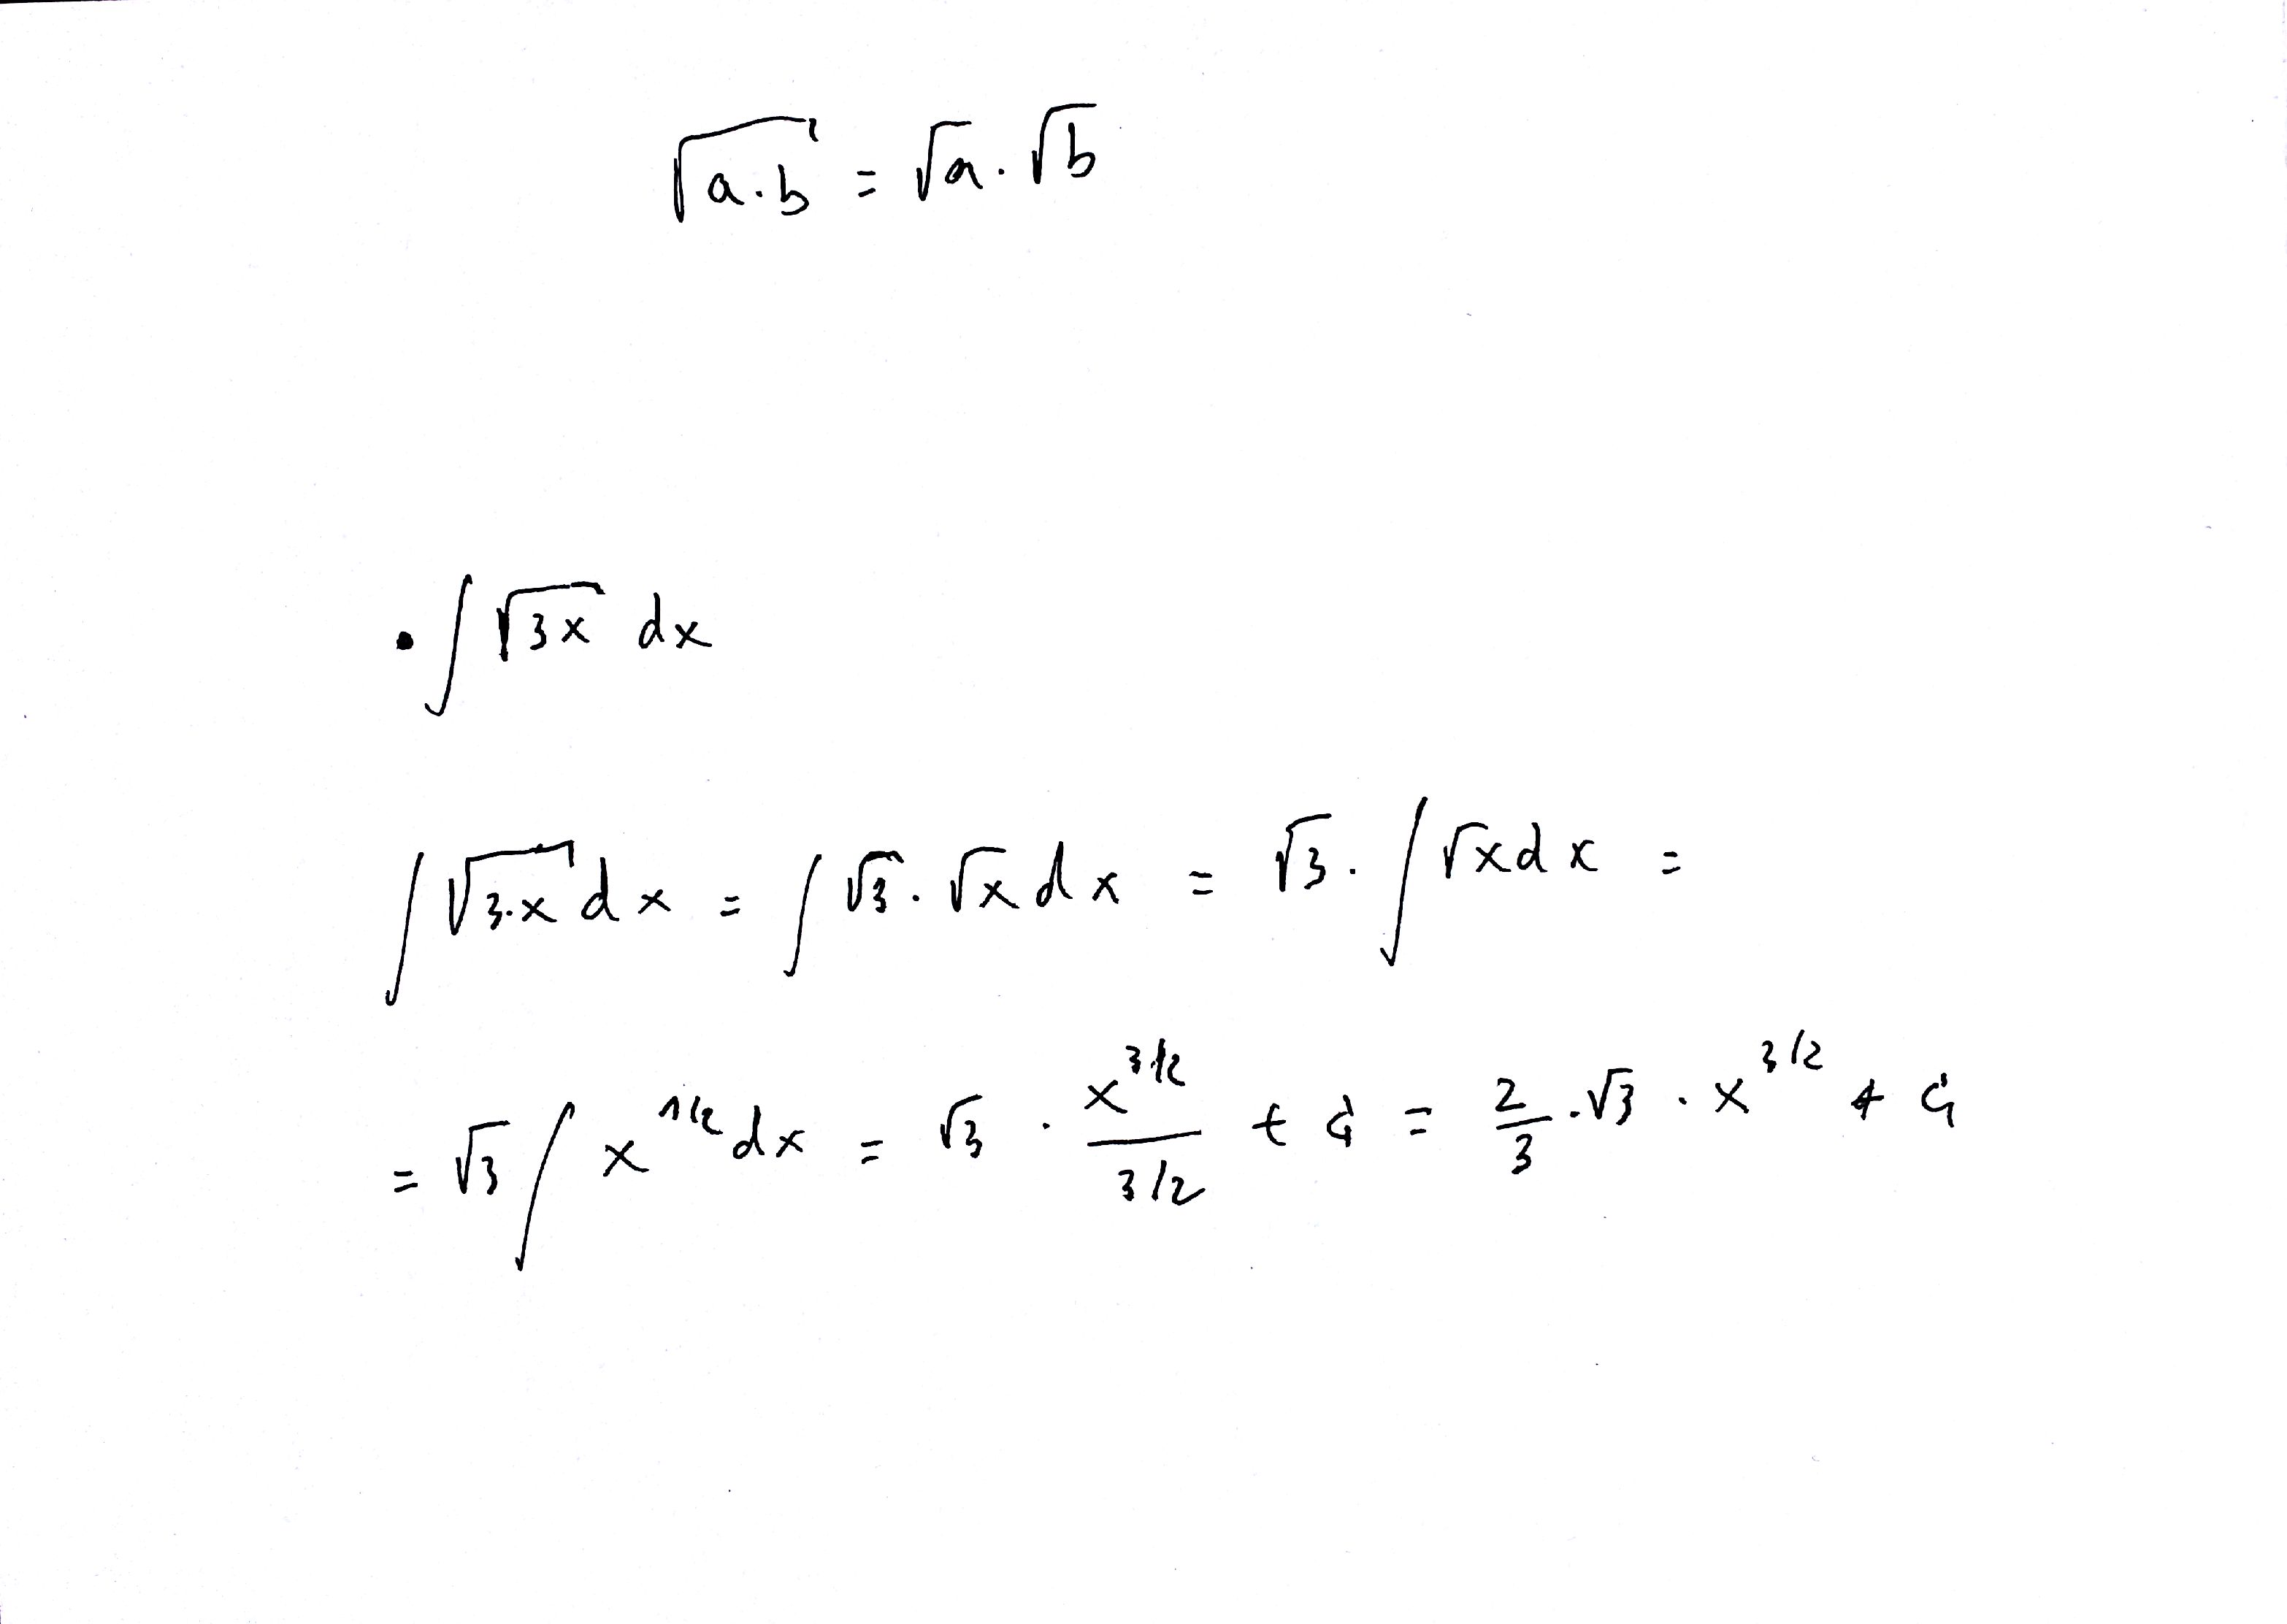 √(a·b) = √a · √b
• ∫ √(3x) dx
∫ √(3·x) dx = ∫ √3 · √x dx = √3 · ∫ √x dx =
= √3 ∫ x^(1/2) dx = √3 · x^(3/2) / (3/2) + C = 2/3 · √3 · x^(3/2) + C